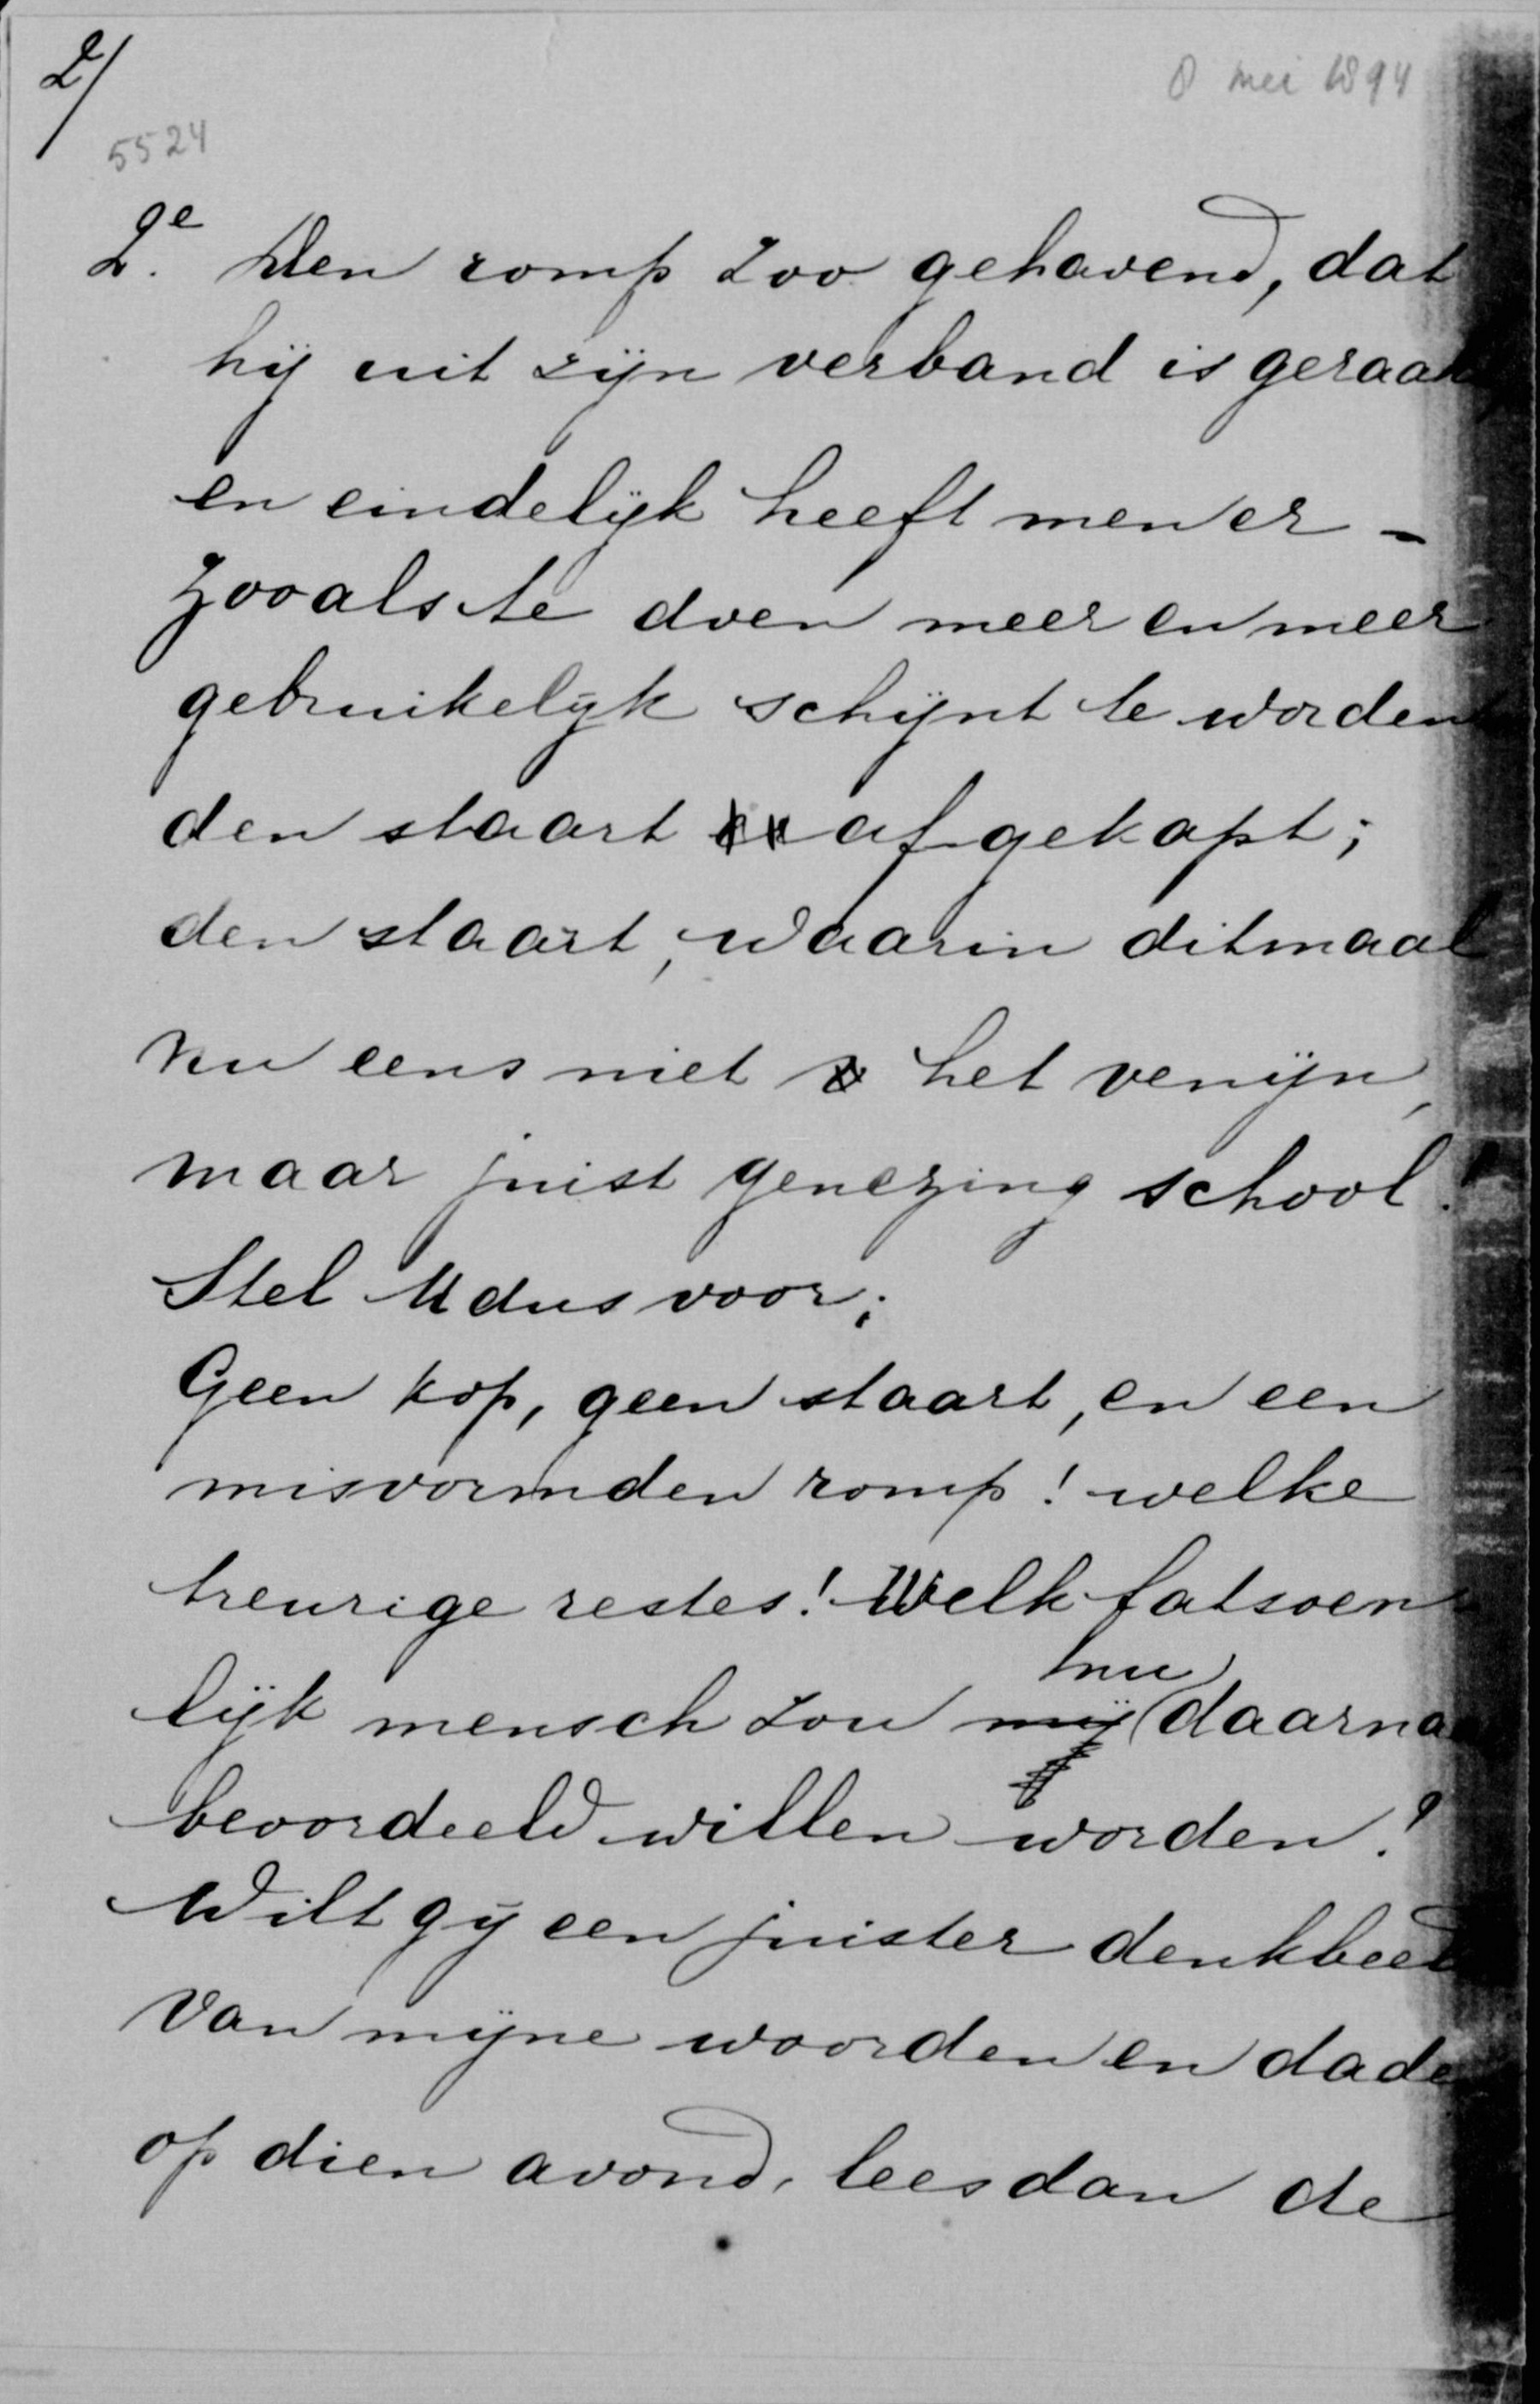 2/
8 mei 1894
5524
2e. Den romp zoo gehavend, dat
hij uit zijn verband is geraak
en eindelijk heeft men er –
zooals te doen meer en meer
gebruikelijk schijnt te worden
den staart afgekapt;
den staart, waarin ditmaal
nu eens niet het venijn,
maar juist genezing school.
Stel U dus voor;
Geen kop, geen staart, en een
misvormden romp! welke
treurige restes! Welk fatsoen-
nu
lijk mensch zou mij daarna
beoordeeld willen worden!
Wilt gij een juister denkbeeld
van mijne woorden en dade
op dien avond, lees dan de